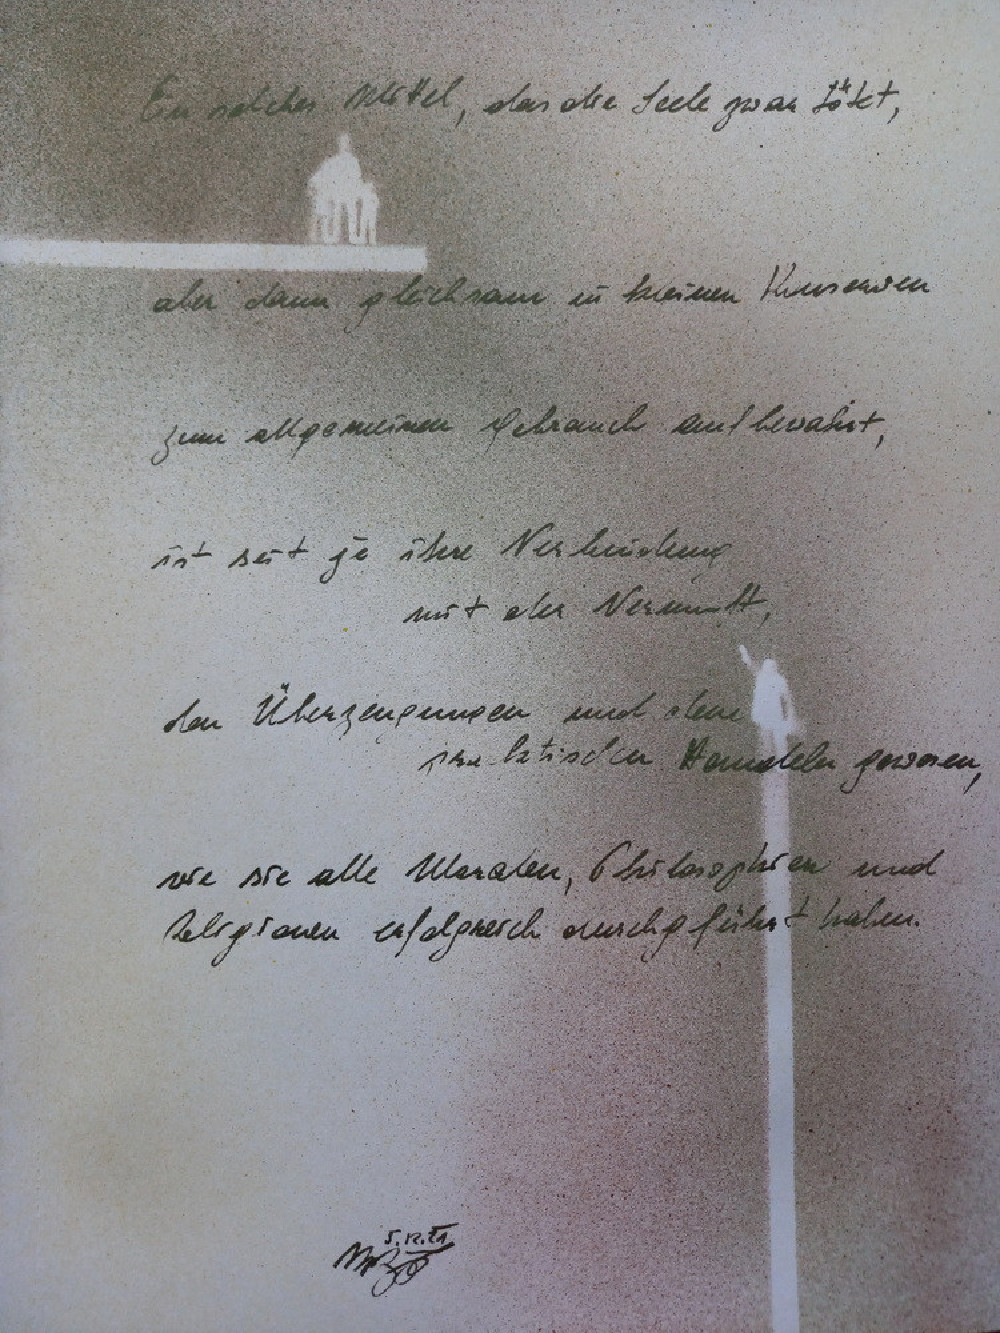 Ein solches Mittel, das die Seele zwar tötet,
aber dann gleichsam in kleinen Konserven
zum allgemeinen Gebrauch aufbewahrt,
ist seit je ihre Verbindung
mit der Vernunft,
den Überzeugungen und dem
praktischen Handeln gewesen,
wie sie alle Moralen, Philosophien und
Religionen erfolgreich durchgeführt haben.
5.12.21